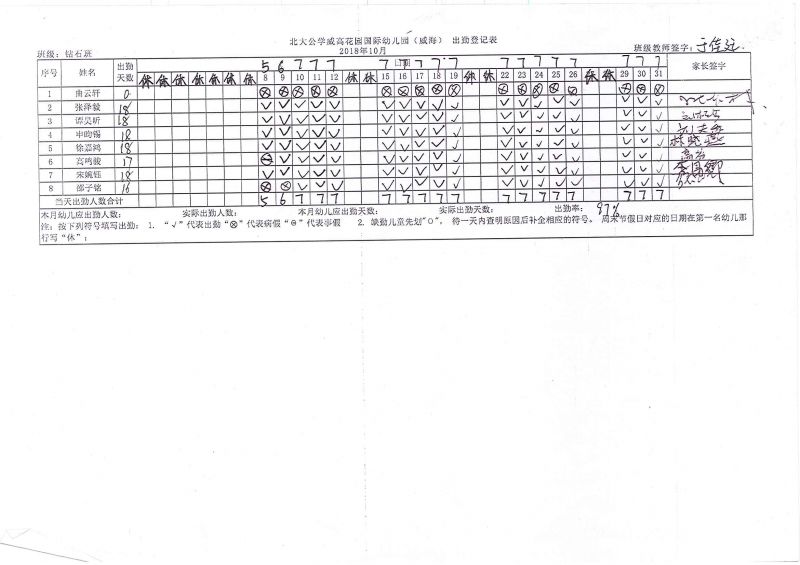 北大公学威高花园国际幼儿园（威海） 出勤登记表
班级：钻石班 2018年10月 班级教师签字：于佳运
5 6 7 7 7 7 7 7 7 7 7 7 7 7 7 7 7 7
序号 姓名 出勤天数 日期 家长签字
休 休 休 休 休 休 休 8 9 10 11 12 休 休 15 16 17 18 19 休 休 22 23 24 25 26 休 休 29 30 31
1 曲云轩 0 ⊗ ⊗ ⊗ ⊗ ⊗ ⊗ ⊗ ⊗ ⊗ ⊗ ⊗ ⊗ ⊗ ⊗ ⊗ ⊗ ⊗ ⊗
2 张泽毅 18 √ √ √ √ √ √ √ √ √ √ √ √ √ √ √ √ √ √
3 谭昊昕 18 √ √ √ √ √ √ √ √ √ √ √ √ √ √ √ √ √ √
4 申昀锡 18 √ √ √ √ √ √ √ √ √ √ √ √ √ √ √ √ √ √
5 徐嘉鸿 18 √ √ √ √ √ √ √ √ √ √ √ √ √ √ √ √ √ √ 林晓燕
6 高鸣骏 17 ⊗ √ √ √ √ √ √ √ √ √ √ √ √ √ √ √ √ √
7 宋婉钰 18 √ √ √ √ √ √ √ √ √ √ √ √ √ √ √ √ √ √
8 邵子铭 16 ⊗ ⊗ √ √ √ √ √ √ √ √ √ √ √ √ √ √ √ √
当天出勤人数合计 5 6 7 7 7 7 7 7 7 7 7 7 7 7 7 7 7 7
本月幼儿应出勤人数： 实际出勤人数： 本月幼儿应出勤天数： 实际出勤天数： 出勤率： 87%
注：按下列符号填写出勤： 1. “√”代表出勤“⊗”代表病假“⊕”代表事假 2. 缺勤儿童先划"O"，待一天内查明原因后补全相应的符号。 周末节假日对应的日期在第一名幼儿那
行写“休”；